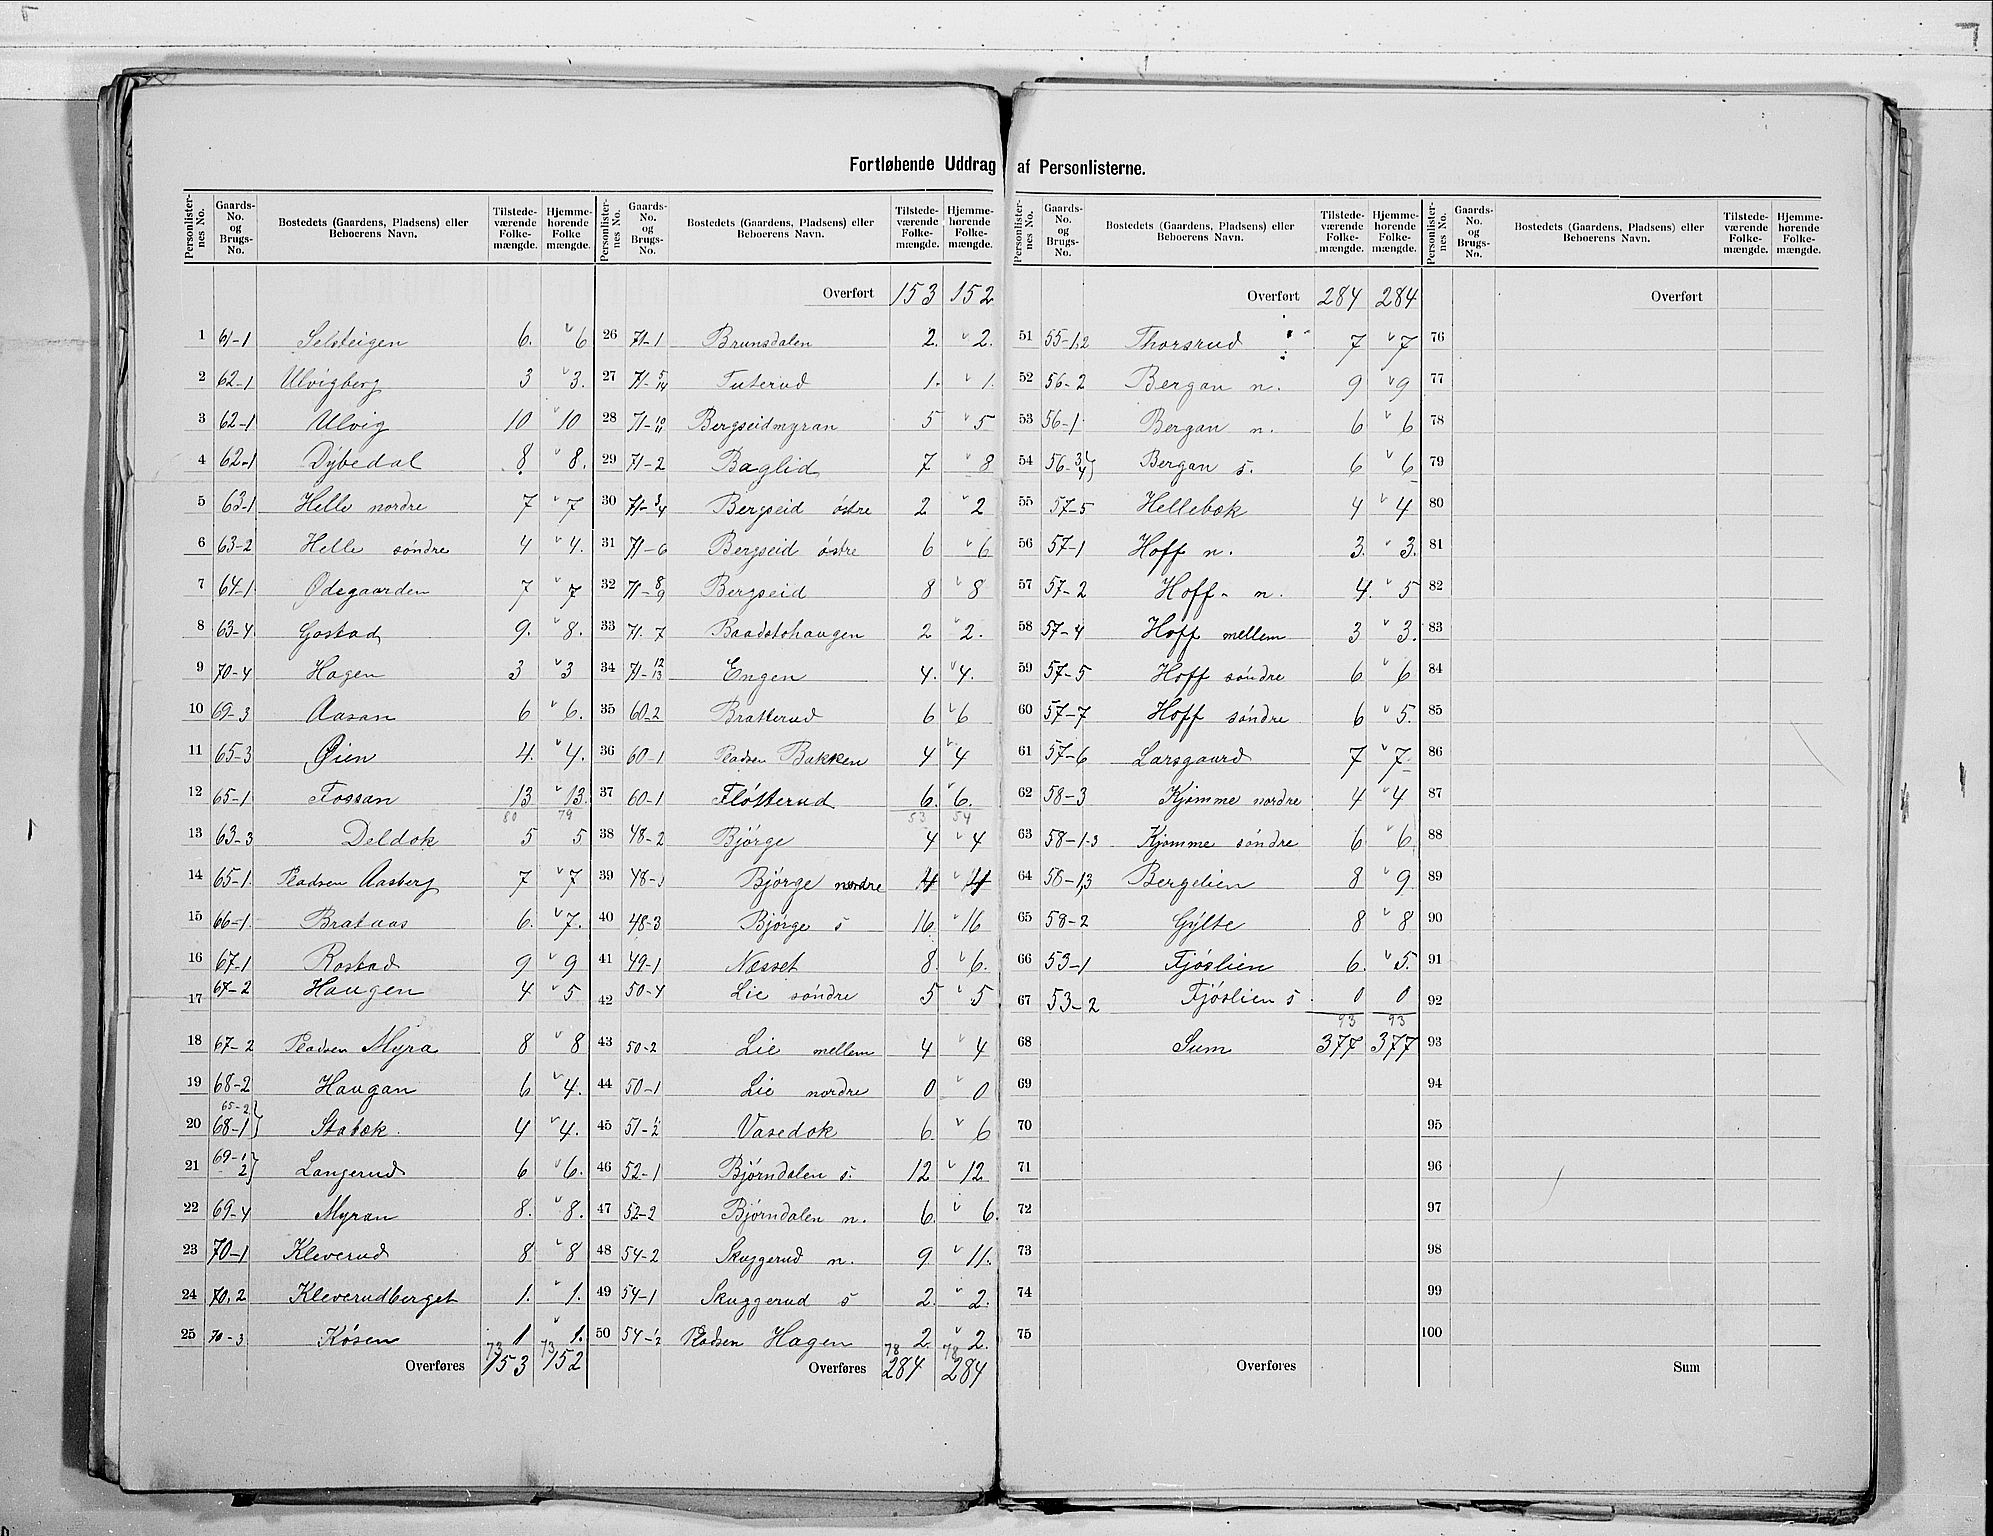 Fortløbende Uddrag af Personlisterne.
Personlister-nes No. | Gaards-No. og Brugs-No. | Bostedets (Gaardens, Pladsens) eller Beboerens Navn. | Tilstede-værende Folke-mængde. | Hjemme-hørende Folke-mængde.
1 61-1 Selsteigen 6. v 6
2 62-1 Ulvigberg 3 v 3.
3 62-1 Ulvig 10 v 10
4 62-1 Dybedal 8. v 8.
5 63-1 Helle nordre 7 v 7
6 63-2 Helle søndre 4 v 4.
7 64-1 Ødegaarden 7 v 7
8 63-4 Gostad 9. v 8.
9 70-4 Hagen 3 v 3
10 69-3 Aasan 6 v 6.
11 65-3 Øien 4. v 4.
12 65-1 Fossan 13 v 13.
80 79
13 63-3 Deldok 5 5
14 65-1. Pladsen Aasberg 7 v 7
15 66-1. Brataas 6. v 7.
16 67-1 Rostad 9 v 9
17 67-2 Haugen 4 v 5
18 67-2 Pladsen Myra 8 v 8
19 68-2 Haugan 6 v 4.
65-2
20 68-1 } Stabæk. 4 v 4.
21 69-1/2 } Langerud 6 v 6.
22 69-4 Myran 8. v 8.
23 70-1 Kleverud 8 v 8
24 70,2 Kleverudberget 1. v 1.
25 70-3 Køsen 1 v 1.
73 73
Overføres 153 152
Personlister-nes No. | Gaards-No. og Brugs-No. | Bostedets (Gaardens, Pladsens) eller Beboerens Navn. | Tilstede-værende Folke-mængde. | Hjemme-hørende Folke-mængde.
Overført 153 152
26 71-1 Brunsdalen 2. v 2.
27 71-5/14 Tuterud 1. v 1.
28 71-10/11 Bergseidmyran 5 v 5
29 71-2 Baglid 7 v 8
30 71-3/4 Bergseid østre 2 v 2
31 71-6 Bergseid østre 6 v 6
32 71-8/9 Bergseid 8 v 8
33 71-7 Baadstohaugen 2 v 2.
34 71-12/13 Engen 4. v 4.
35 60-2 Bratterud 6 v 6
36 60-1 Pladsen Bakken 4 v 4
37 60-1 Fløtterud 6. v 6.
53 54
38 48-2 Bjørge 4 v 4
39 48-1 Bjørge nordre 4 v 4
40 48-3 Bjørge s 16 v 16
41 49-1 Næsset 8. v 6.
42 50-4 Lie søndre 5 v 5
43 50-2 Lie mellem 4 v 4
44 50-1 Lie nordre 0 v 0
45 51-1/2 Vasedok 6 v 6
46 52-1 Bjørndalen s. 12 v 12
47 52-2 Bjørndalen n. 6. v 6.
48 54-2 Skuggerud n. 9. v 11.
49 54-1 Skuggerud s 2. v 2.
50 54-1/2 Pladsen Hagen 2. v 2.
78 78
Overføres 284 284
Personlister-nes No. | Gaards-No. og Brugs-No. | Bostedets (Gaardens, Pladsens) eller Beboerens Navn. | Tilstede-værende Folke-mængde. | Hjemme-hørende Folke-mængde.
Overført 284 284
51 55-1,2 Thorsrud 7 v 7
52 56-2 Bergan n. 9 v 9
53 56-1 Bergan n. 6 v 6
54 56-3/4) Bergan s. 6 v 6
55 57-5 Hellebæk 4 v 4
56 57-1 Hoff n. 3. v 3.
57 57-2 Hoff- n. 4. v 5
58 57-4 Hoff mellem 3 v 3.
59 57-5 Hoff søndre 6 v 6
60 57-7 Hoff søndre 6 v 5.
61 57-6 Larsgaard 7 v 7.
62 58-3 Kjømme nordre 4 v 4
63 58-1-3 Kjømme søndre 6 v 6
64 58-1,3 Bergelien 8 v 9
65 58-2 Gylte 8 v 8
66 53-1 Fjøslien 6. v 5.
67 53-2 Fjøslien s. 0 0
93 93
68 Sum 377 377
69
70
71
72
73
74
75
Overføres
Personlister-nes No. | Gaards-No. og Brugs-No. | Bostedets (Gaardens, Pladsens) eller Beboerens Navn. | Tilstede-værende Folke-mængde. | Hjemme-hørende Folke-mængde.
Overført
76
77
78
79
80
81
82
83
84
85
86
87
88
89
90
91
92
93
94
95
96
97
98
99
100
Sum